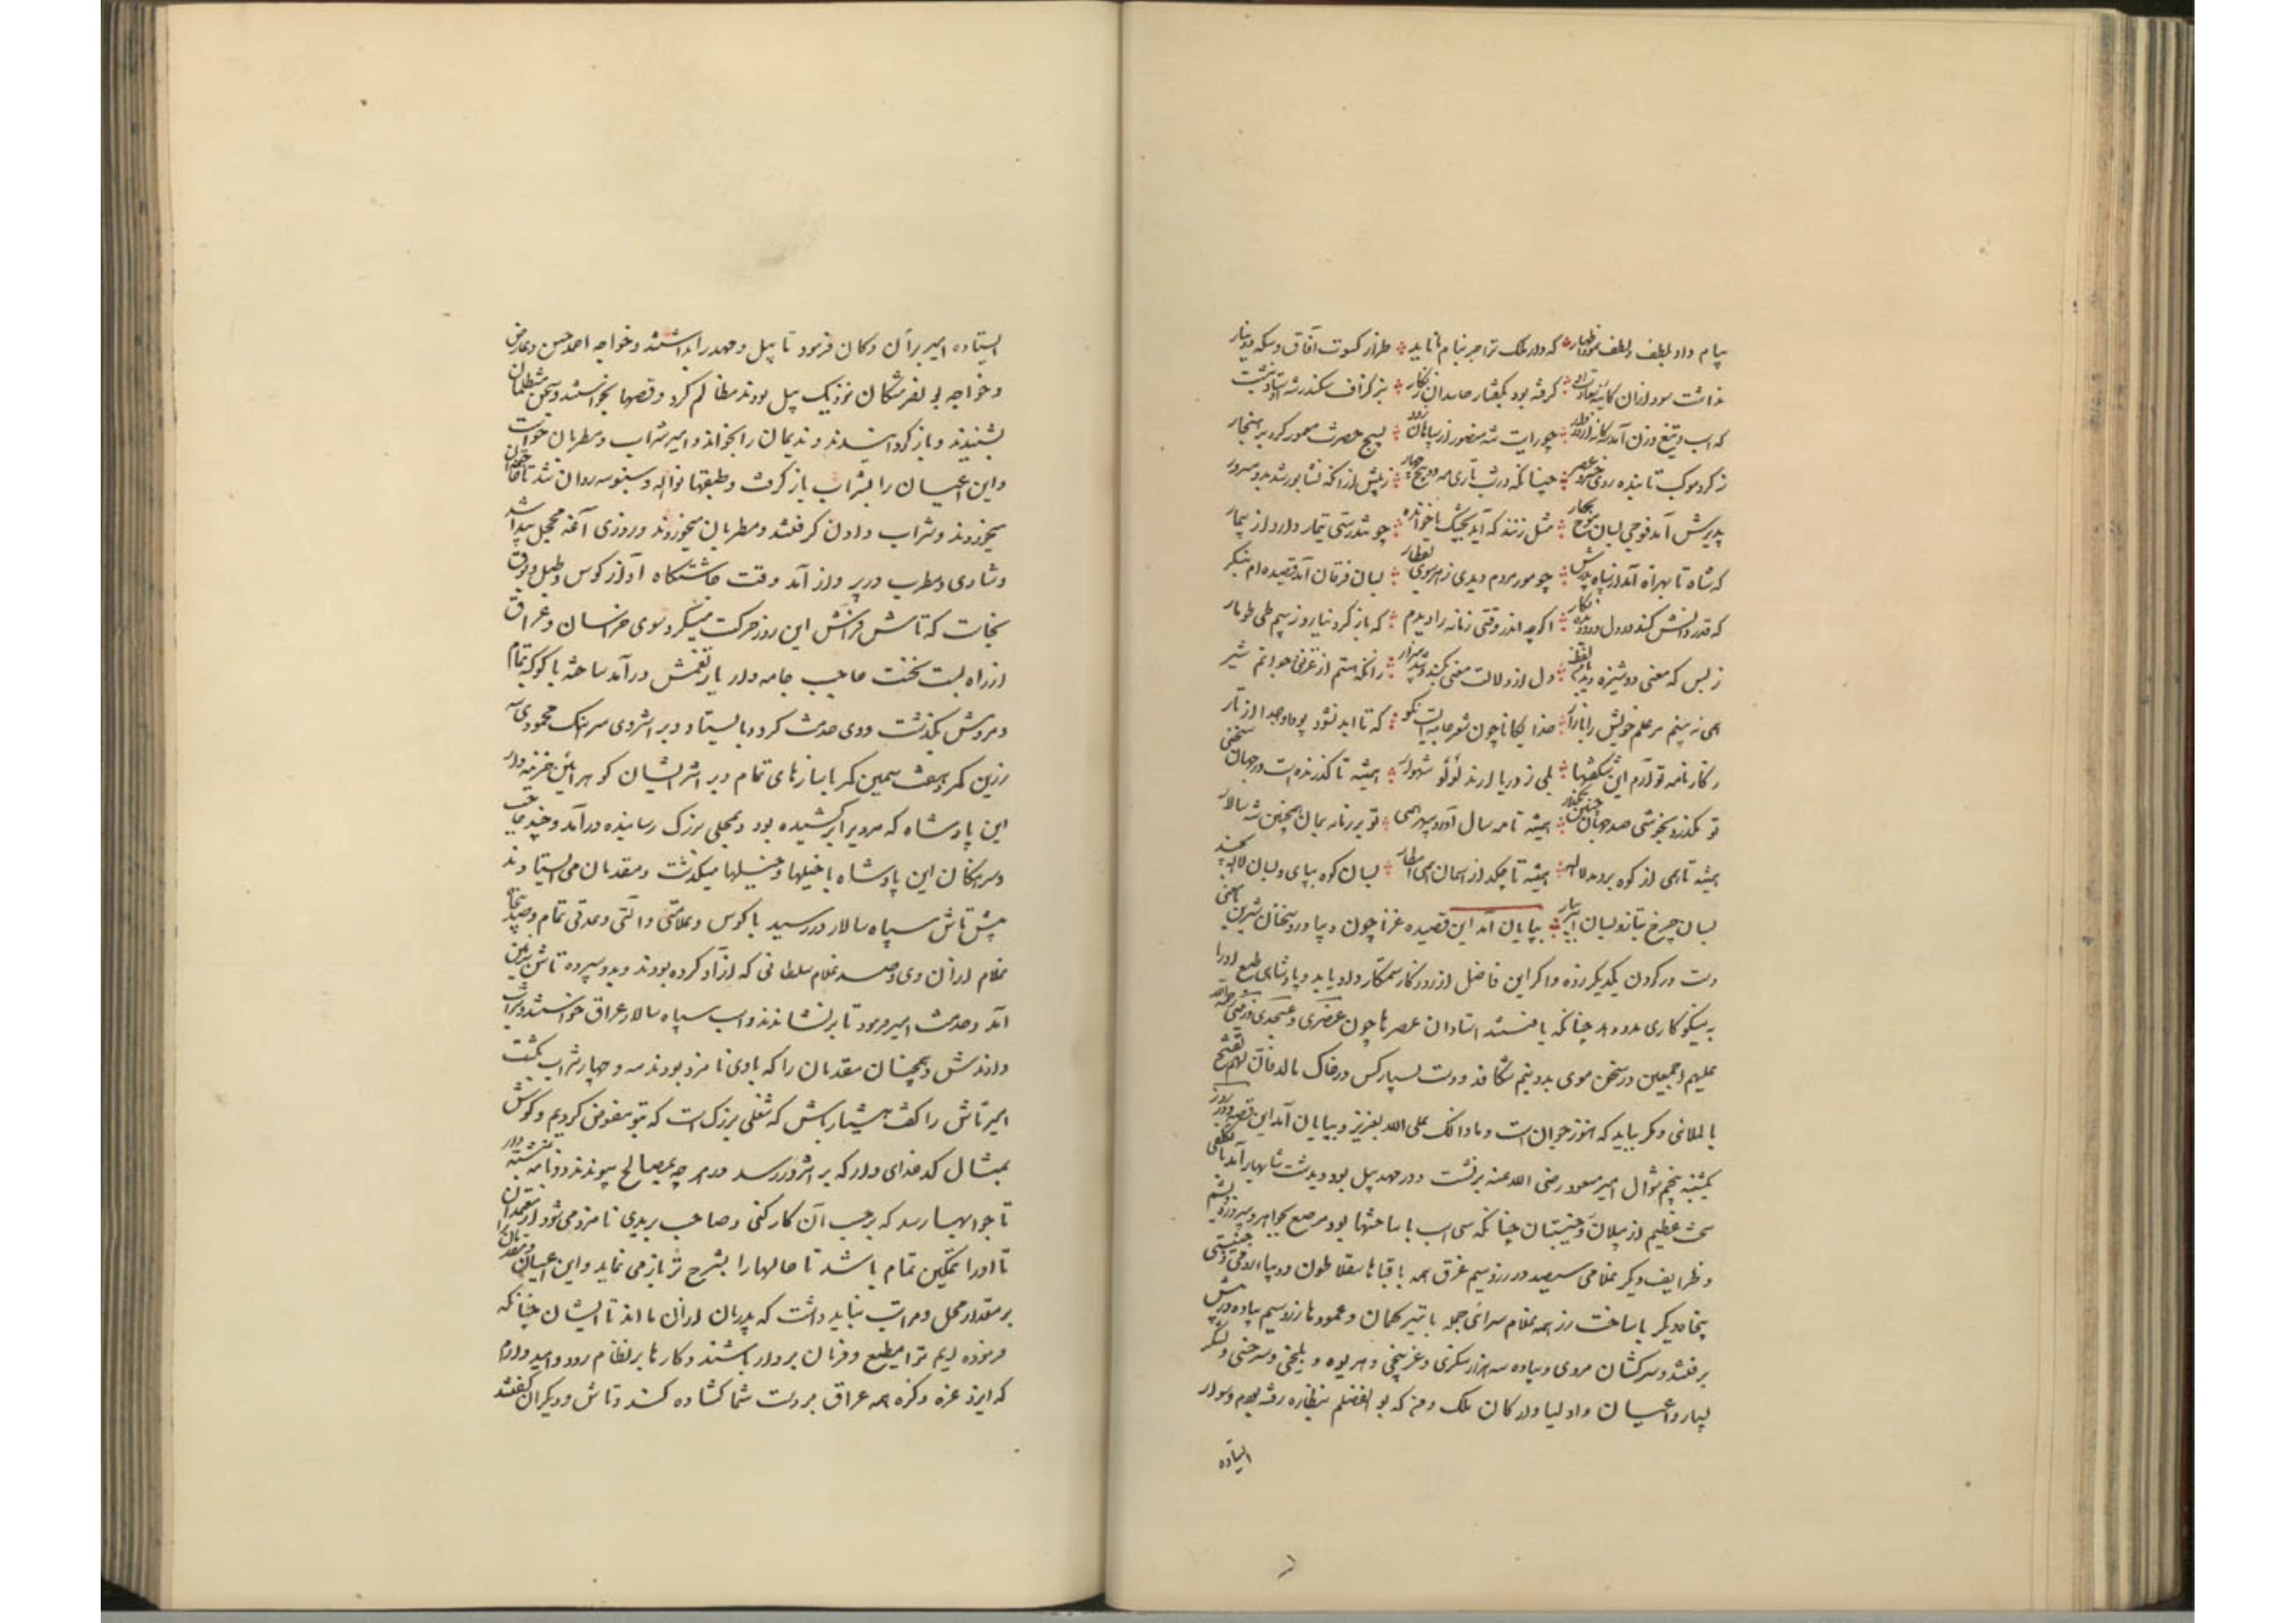 پیام داد بلطف و لطف نمود اظهار که دار ملک ترا جز بنام ما ناید طراز کسوت آفاق و سکه دینار
نداشت سود ازان کآینه سعادت او گرفته بود بگفتار حاسدان زنگار بزکزاف سکندر نه اوستاد نبشت
که اسب و تیغ و زن آمد سه کانه از در دار چو رایت شه منصور از سپاهان زود بسیج حضرت معمور کرد بر هنجار
ز کرد موکب تابنده روی خسرو عصر چنانکه در شب تاری مه دو پنج و چهار ز پیش از آنکه نشابور شد بدو مسرور
پذیرش آمد فوجی بسان موج بحار مثل زنند که آید بجشک ناخوانده چو تندرستی تیمار دارد از بیمار
که شاه تا بهراة آمد از سپاه پدرش چو مور مردم دیدی ز هر سوی بقطار بسان فرقان آمد قصیده ام بنگر
که قدر دانش کند در دل و دو دیده نگار اگرچه اندر وقتی زمانه را دیدم که باز کرد نیارم ز بیم طی طومار
ز بس که معنی دوشیزه دید با من لفظ دل از دلالت معنی بکند و شد بیزار از آنکه هستم از غزنی و جوانم نیز
همی نه بینم مر علم خویش را بازار خدایگانا چون شعر جامه ایست نکو که تا ابد نشود پود او جدا از تار
ز کارنامه تو آرم این شگفتیها بلی ز دریا آرند لؤلؤ شهوار همیشه تا گذرنده است در جهان سختی
تو بگذر و بخوشی صد جهان چنین بگذار همیشه تا مه و سال آورد سپهر همی تو بر زمانه بمان همچنین شه سالار
همیشه تا همی از کوه بر دمد لاله همیشه تا چکد از آسمان همی امطار بسان کوه بپای و بسان لاله بخند
بسان چرخ بتاز و بسان ابر ببار بپایان آمد این قصیده غرا چون دیبا در و سخنان شیرین بامعنی
دست در کردن یکدیگر زده و اگر این فاضل از روزگار ستمکار داد یابد و پادشاهی طبع او را
به نیکو کاری مدد دهد چنانکه یافتند استادان عصرها چون عنصری و عسجدی و فرخی رحمة الله
علیهم اجمعین در سخن موی بدو نیم شکافد و دست بسیار کس در خاک مالد فان اللهی تفتح
باللهی و مگر بیابد که هنوز جوان است و ما ذلک علی الله بعزیز و بپایان آمد این قصه و روز
یکشنبه پنجم شوال امیر مسعود رضی الله عنه برنشست و در مهد پیل بود و بدشت شابهار آمد با تکلفی
سخت عظیم از پیلان و جنیبتان چنانکه سی اسب با ساختها بود مرصع بجواهر و پیروزه و یشم
و ظرایف دیگر غلامی سیصد در زر و سیم غرق همه با قباها سقلاطون و دیباء رومی و جنیبتی
پنجاه دیگر با ساخت زر همه غلام سرائی جمله با تیر کمان و عمودها زر و سیم پیاده در پیش
برفتند و سرکشان مروی و پیاده سه هزار سکزی و غزنیچی و هریوه و بلخی و سرخسی و لشکر
بسیار و اعیان و اولیا و ارکان ملک و من که بو الفضلم بنظاره رفته بودم و سوار
ایستاده
ایستاده امیر بر آن دکان فرمود تا پیل و مهد را بداشتند و خواجه احمد حسن و عارض
و خواجه بو نصر مشکان نزدیک پیل بودند مظالم کرد و قصها بخواستند و سخن متظلمان
بشنیدند و باز گردانیدند و ندیمان را بخواند و امیر شراب و مطربان خواست
و این اعیان را بشراب باز گرفت و طبقها نواله و سنبوسه روان شد تا حاضران
میخوردند و شراب دادن گرفتند و مطربان میخوردند و روزی آغه محجل پیدا شد
و شادی و طرب در پرواز آمد وقت چاشتگاه آواز کوس و طبل و بوق
بخاست که تاش فراش این روز حرکت میکرد سوی خراسان و عراق
از راه بست نخست حاجب جامه دار یارتغمش درآمد ساخته با کوکبه تمام
و مردمش بگذشت و وی خدمت کرد و بایستاد و بر اثر وی سرهنگ محمودی سه
زرین کمر و هفت سیمین کمر با سازهای تمام و بر اثر ایشان کوهر ائین خزینه دار
این پادشاه که مر ویرا برکشیده بود و بمحلی بزرگ رسانیده درآمد و چند حاجب
و سرهنگان این پادشاه با خیلها و خیلها میگذشت و مقدمان می ایستادند
پیش تاش سپاه سالار در رسید با کوس و علامتی و آلتی و عدتی تمام و صد و پنجاه
غلام از آن وی و صد غلام سلطانی که آزاد کرده بودند و بدو سپرده تاش بزمین
آمد و خدمت امیر فرمود تا بر نشاندند و اسب سپاه سالار عراق خواستند و شراب
دادندش و همچنان مقدمان را که با وی نامزد بودند سه و چهار شراب بگشت
امیر تاش را گفت هشیار باش که شغلی بزرگ است که بتو مفوض کردیم و گوش
بمثال کدخدای دار که بر اثر در رسد در هر چه بمصالح پیوندد و نامه نبشته دار
تا جوابها رسد که بر حسب آن کار کنی و صاحب بریدی نامزد می شود از معتمدان
تا او را تمکین تمام باشد تا حالها را بشرح تر باز می نماید و این اعیان و مقدمان را
بر مقدار محل و مراتب بباید داشت که پدریان از آن ما اند تا ایشان چنانکه
فرموده ایم ترا مطیع و فرمان بردار باشند و کارها بر نظام رود و امید وارم
که ایزد عزه و ذکره همه عراق بر دست شما گشاده کند و تاش و دیگران گفتند